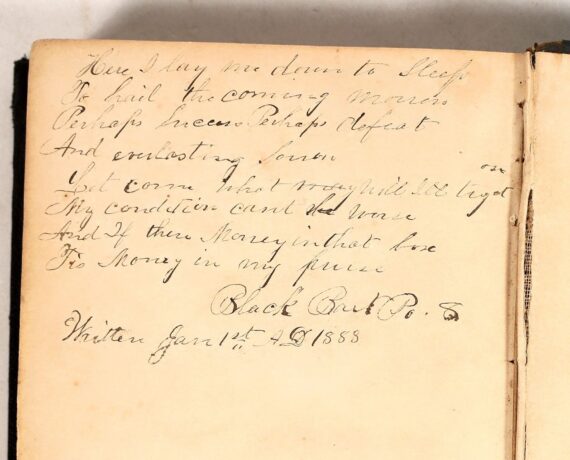 Here I lay me down to Sleep
To hail the coming morrow
Perhaps Success Perhaps defeat
And everlasting Sorrow
Let come what may will Ill try it on
My condition cant be worse
And If there Money in that box
Tis Money in my purse
Black Bart Po. 8
Written Jan 1st AD 1888